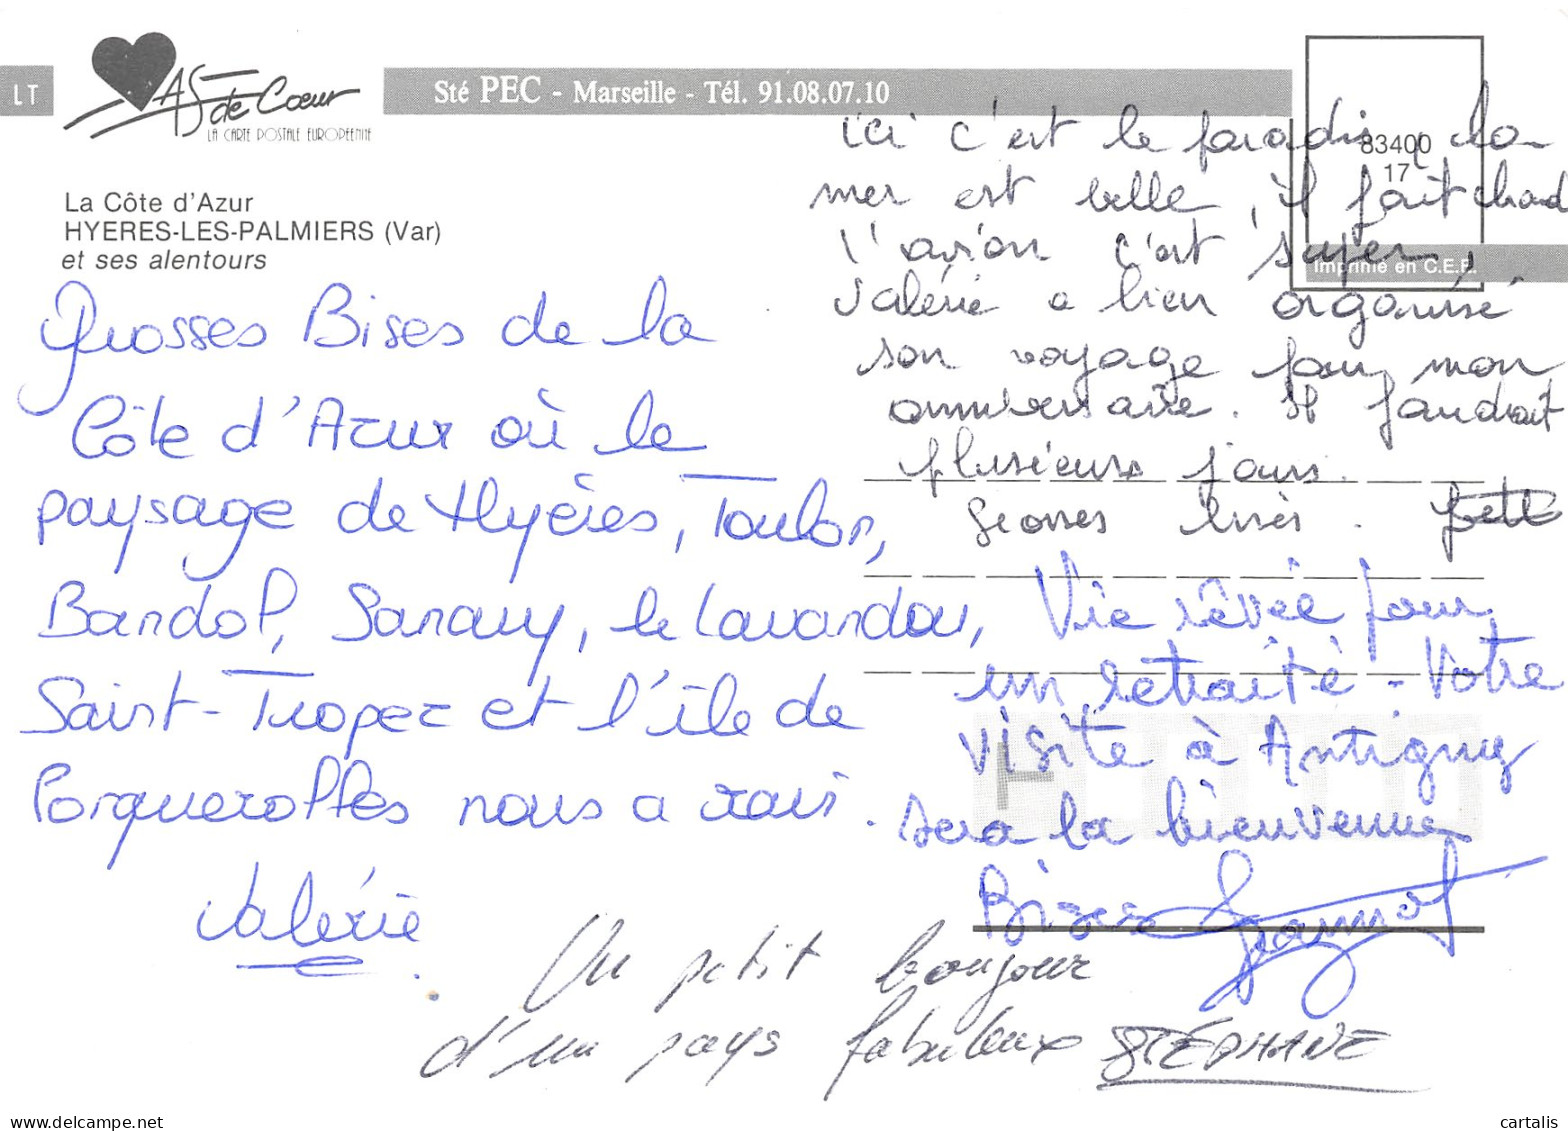 LT
AS de Coeur
LA CARTE POSTALE EUROPÉENNE
Sté PEC - Marseille - Tél. 91.08.07.10
83400
17
Imprimé en C.E.E.
La Côte d'Azur
HYERES-LES-PALMIERS (Var)
et ses alentours
Grosses Bises de la
Côte d'Azur où le
paysage de Hyères, Toulon,
Bandol, Sanary, le Lavandou,
Saint-Tropez et l'île de
Porquerolles nous a ravi.
Valérie
ici c'est le paradis, la
mer est belle, il fait chaud
l'avion c'est super,
Valérie a bien organisé
son voyage pour mon
anniversaire. Il faudrait
plusieurs jours.
Grosses bises.
Vie rêvée pour
un retraité - Votre
visite à Antigny
sera la bienvenue
Bises
Un petit bonjour
d'un pays fabuleux STÉPHANE
delcampe.net
cartalis